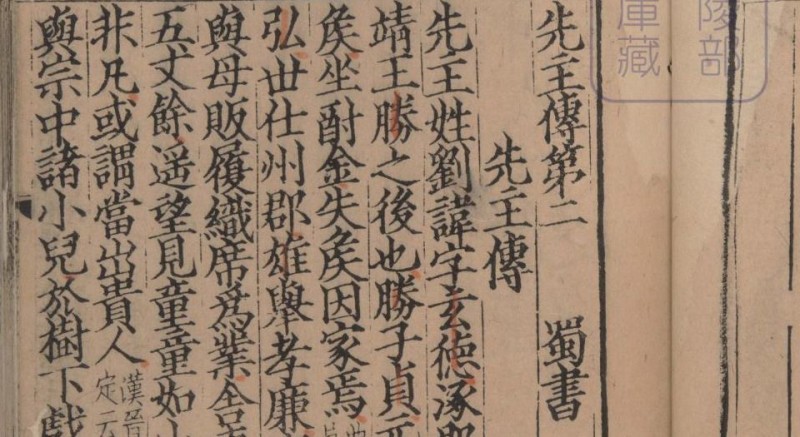 陵部
庫藏
先主傳第二　蜀書
先主傳
先主姓劉諱字玄德涿郡
靖王勝之後也勝子貞元
矦坐酎金失矦因家焉
弘世仕州郡雄舉孝廉
與母販履織席爲業舍
五丈餘遥望見童童如
非凡或謂當出貴人漢晉
定云
與宗中諸小兒於樹下戲